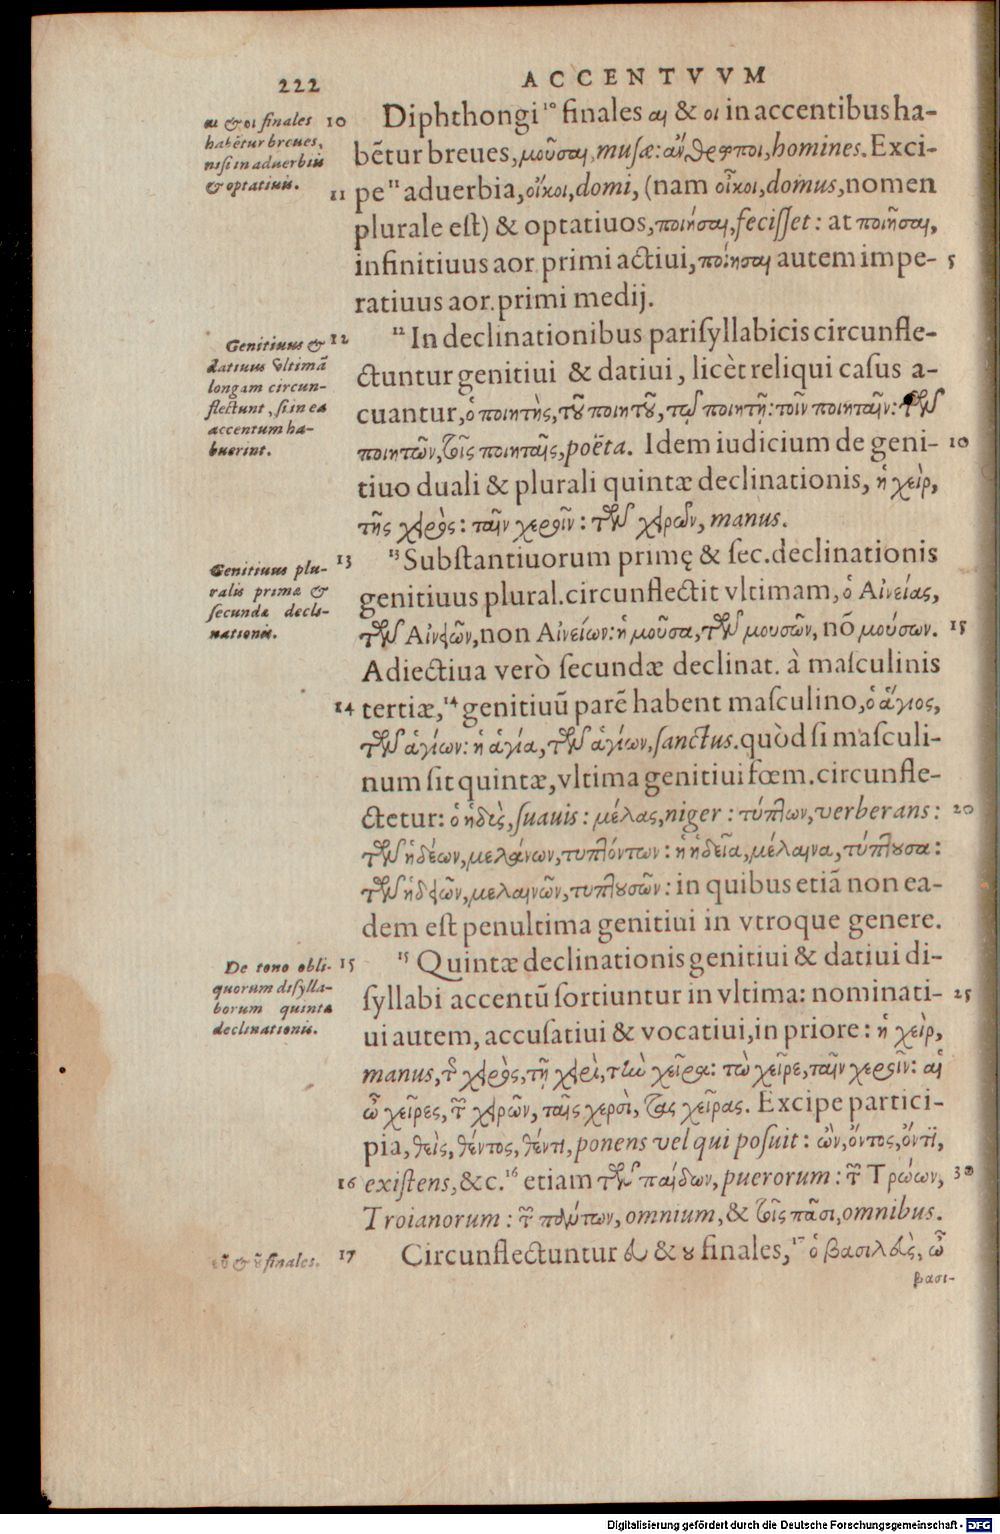 222
ACCENTVVM
αι & οι finales
habētur breues,
nisi in aduerbiis
& optatiuis.
10
Diphthongi¹⁰ finales αι & οι in accentibus ha-
bētur breues, μοῦσαι, musæ: ἄνθρωποι, homines. Exci-
11
pe¹¹ aduerbia, οἴκοι, domi, (nam οἶκοι, domus, nomen
plurale eſt) & optatiuos, ποιήσαι, feciſſet: at ποιῆσαι,
infinitiuus aor. primi actiui, ποίησαι autem impe- 5
ratiuus aor. primi medij.
Genitiuus &
datiuus vltimā
longam circun-
flectunt, ſi in ea
accentum ha-
buerint.
12
¹²In declinationibus pariſyllabicis circunfle-
ctuntur genitiui & datiui, licèt reliqui caſus a-
cuantur, ὁ ποιητὴς, τοῦ ποιητοῦ, τῷ ποιητῇ: τοῖν ποιηταῖν: τῶν
ποιητῶν, τοῖς ποιηταῖς, poëta. Idem iudicium de geni- 10
tiuo duali & plurali quintæ declinationis, ἡ χεὶρ,
τῆς χειρὸς: ταῖν χεροῖν: τῶν χειρῶν, manus.
Genitiuus plu-
ralis primæ &
ſecundæ decli-
nationis.
13
¹³Subſtantiuorum primę & ſec. declinationis
genitiuus plural. circunflectit vltimam, ὁ Αἰνείας,
τῶν Αἰνειῶν, non Αἰνείων: ἡ μοῦσα, τῶν μουσῶν, nō μούσων. 15
Adiectiua verò ſecundæ declinat. à maſculinis
14
tertiæ,¹⁴ genitiuū parē habent maſculino, ὁ ἅγιος,
τῶν ἁγίων: ἡ ἁγία, τῶν ἁγίων, ſanctus. quòd ſi maſculi-
num ſit quintæ, vltima genitiui fœm. circunfle-
ctetur: ὁ ἡδὺς, ſuauis: μέλας, niger: τύπτων, verberans: 20
τῶν ἡδέων, μελάνων, τυπτόντων: ἡ ἡδεῖα, μέλαινα, τύπτουσα:
τῶν ἡδειῶν, μελαινῶν, τυπτουσῶν: in quibus etiā non ea-
dem eſt penultima genitiui in vtroque genere.
De tono obli-
quorum diſylla-
borum quintæ
declinationis.
15
¹⁵Quintæ declinationis genitiui & datiui di-
ſyllabi accentū ſortiuntur in vltima: nominati- 25
ui autem, accuſatiui & vocatiui, in priore: ἡ χεὶρ,
manus, τῆς χειρὸς, τῇ χειρὶ, τὴν χεῖρα: τὼ χεῖρε, ταῖν χεροῖν: αἱ
ὦ χεῖρες, τῶν χειρῶν, ταῖς χερσὶ, τὰς χεῖρας. Excipe partici-
pia, θεὶς, θέντος, θέντι, ponens vel qui poſuit: ὢν, ὄντος, ὄντι,
16
exiſtens, &c.¹⁶ etiam τῶν παίδων, puerorum: τῶν Τρώων, 30
Troianorum: τῶν πάντων, omnium, & τοῖς πᾶσι, omnibus.
εῦ & οῦ finales.
17
Circunflectuntur ευ & ου finales,¹⁷ ὁ βασιλεὺς, ὦ
βασι-
Digitalisierung gefördert durch die Deutsche Forschungsgemeinschaft - DFG